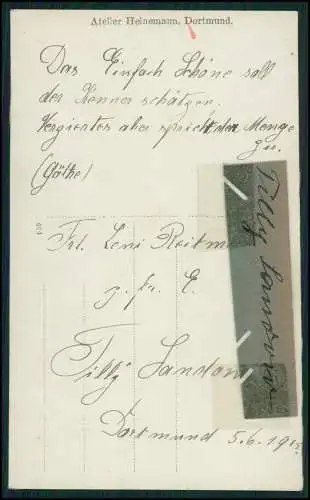 Atelier Heinemann, Dortmund.
Das Einfach Schöne soll
der Kenner schätzen,
Verziertes aber spricht der Menge
zu.
(Göthe)
Frl. Leni
z. fr. E.
Tilly Sandow
Dortmund 5.6.191
Tilly